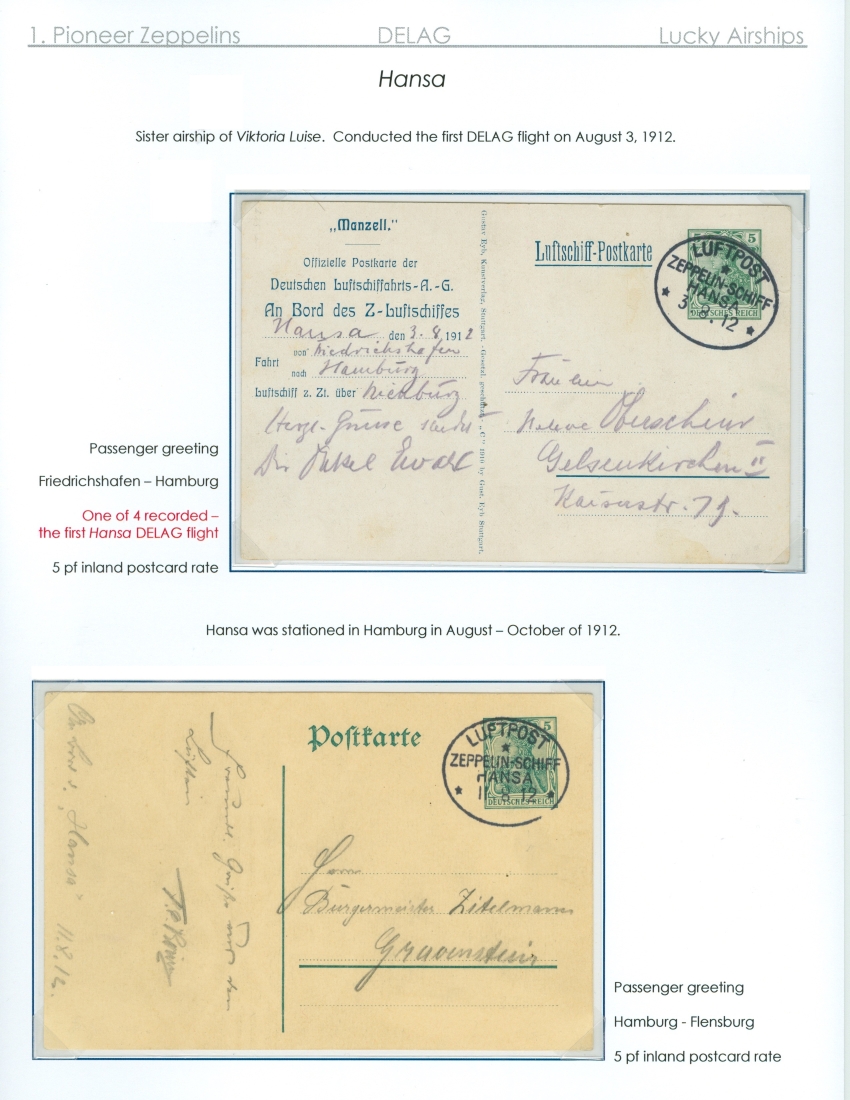 1. Pioneer Zeppelins DELAG Lucky Airships
Hansa
Sister airship of Viktoria Luise. Conducted the first DELAG flight on August 3, 1912.
„Manzell."
Offizielle Postkarte der
Deutschen Luftschiffahrts-A.-G.
An Bord des Z-Luftschiffes
Hansa den 3. 8. 1912
Fahrt von Friedrichshafen
nach Hamburg
Luftschiff z. Zt. über Nienburg
Herzl. Grüsse sendet
Dir Onkel Ewald
Gustav Eyb, Kunstverlag, Stuttgart. - Gesetzl. geschützt. „C" 1910 by Gust. Eyb Stuttgart.
Luftschiff-Postkarte
5
DEUTSCHES REICH
LUFTPOST
ZEPPELIN-SCHIFF
HANSA
3. 8. 12
Fräulein
Oberscheir
Gelsenkirchen II
Kaiserstr. 79.
Passenger greeting
Friedrichshafen – Hamburg
One of 4 recorded –
the first Hansa DELAG flight
5 pf inland postcard rate
Hansa was stationed in Hamburg in August – October of 1912.
An Bord d. „Hansa" 11.8.12.
Freundl. Grüße aus den
Lüften
Postkarte
5
DEUTSCHES REICH
LUFTPOST
ZEPPELIN-SCHIFF
HANSA
11. 8. 12
Herrn
Bürgermeister Zitelmann
Gravenstein
Passenger greeting
Hamburg - Flensburg
5 pf inland postcard rate